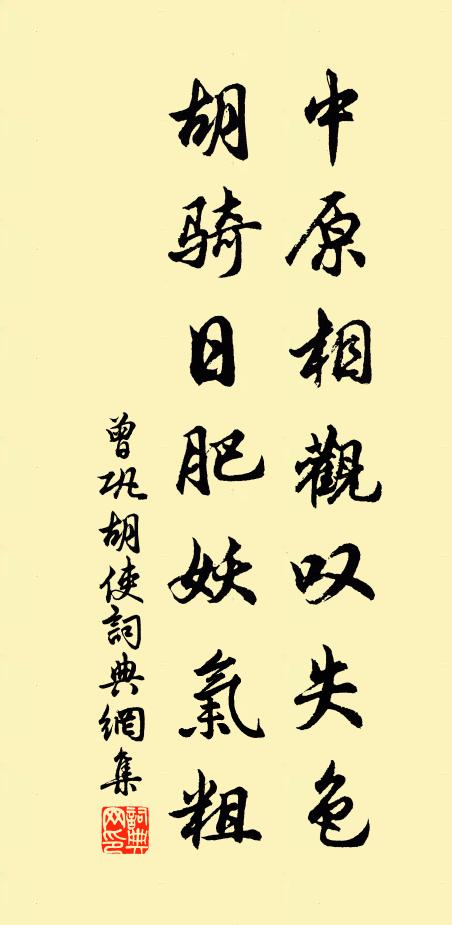 中原相觀叹失色
胡骑日肥妖氣粗
曾巩胡使詞典網集
詞典网印